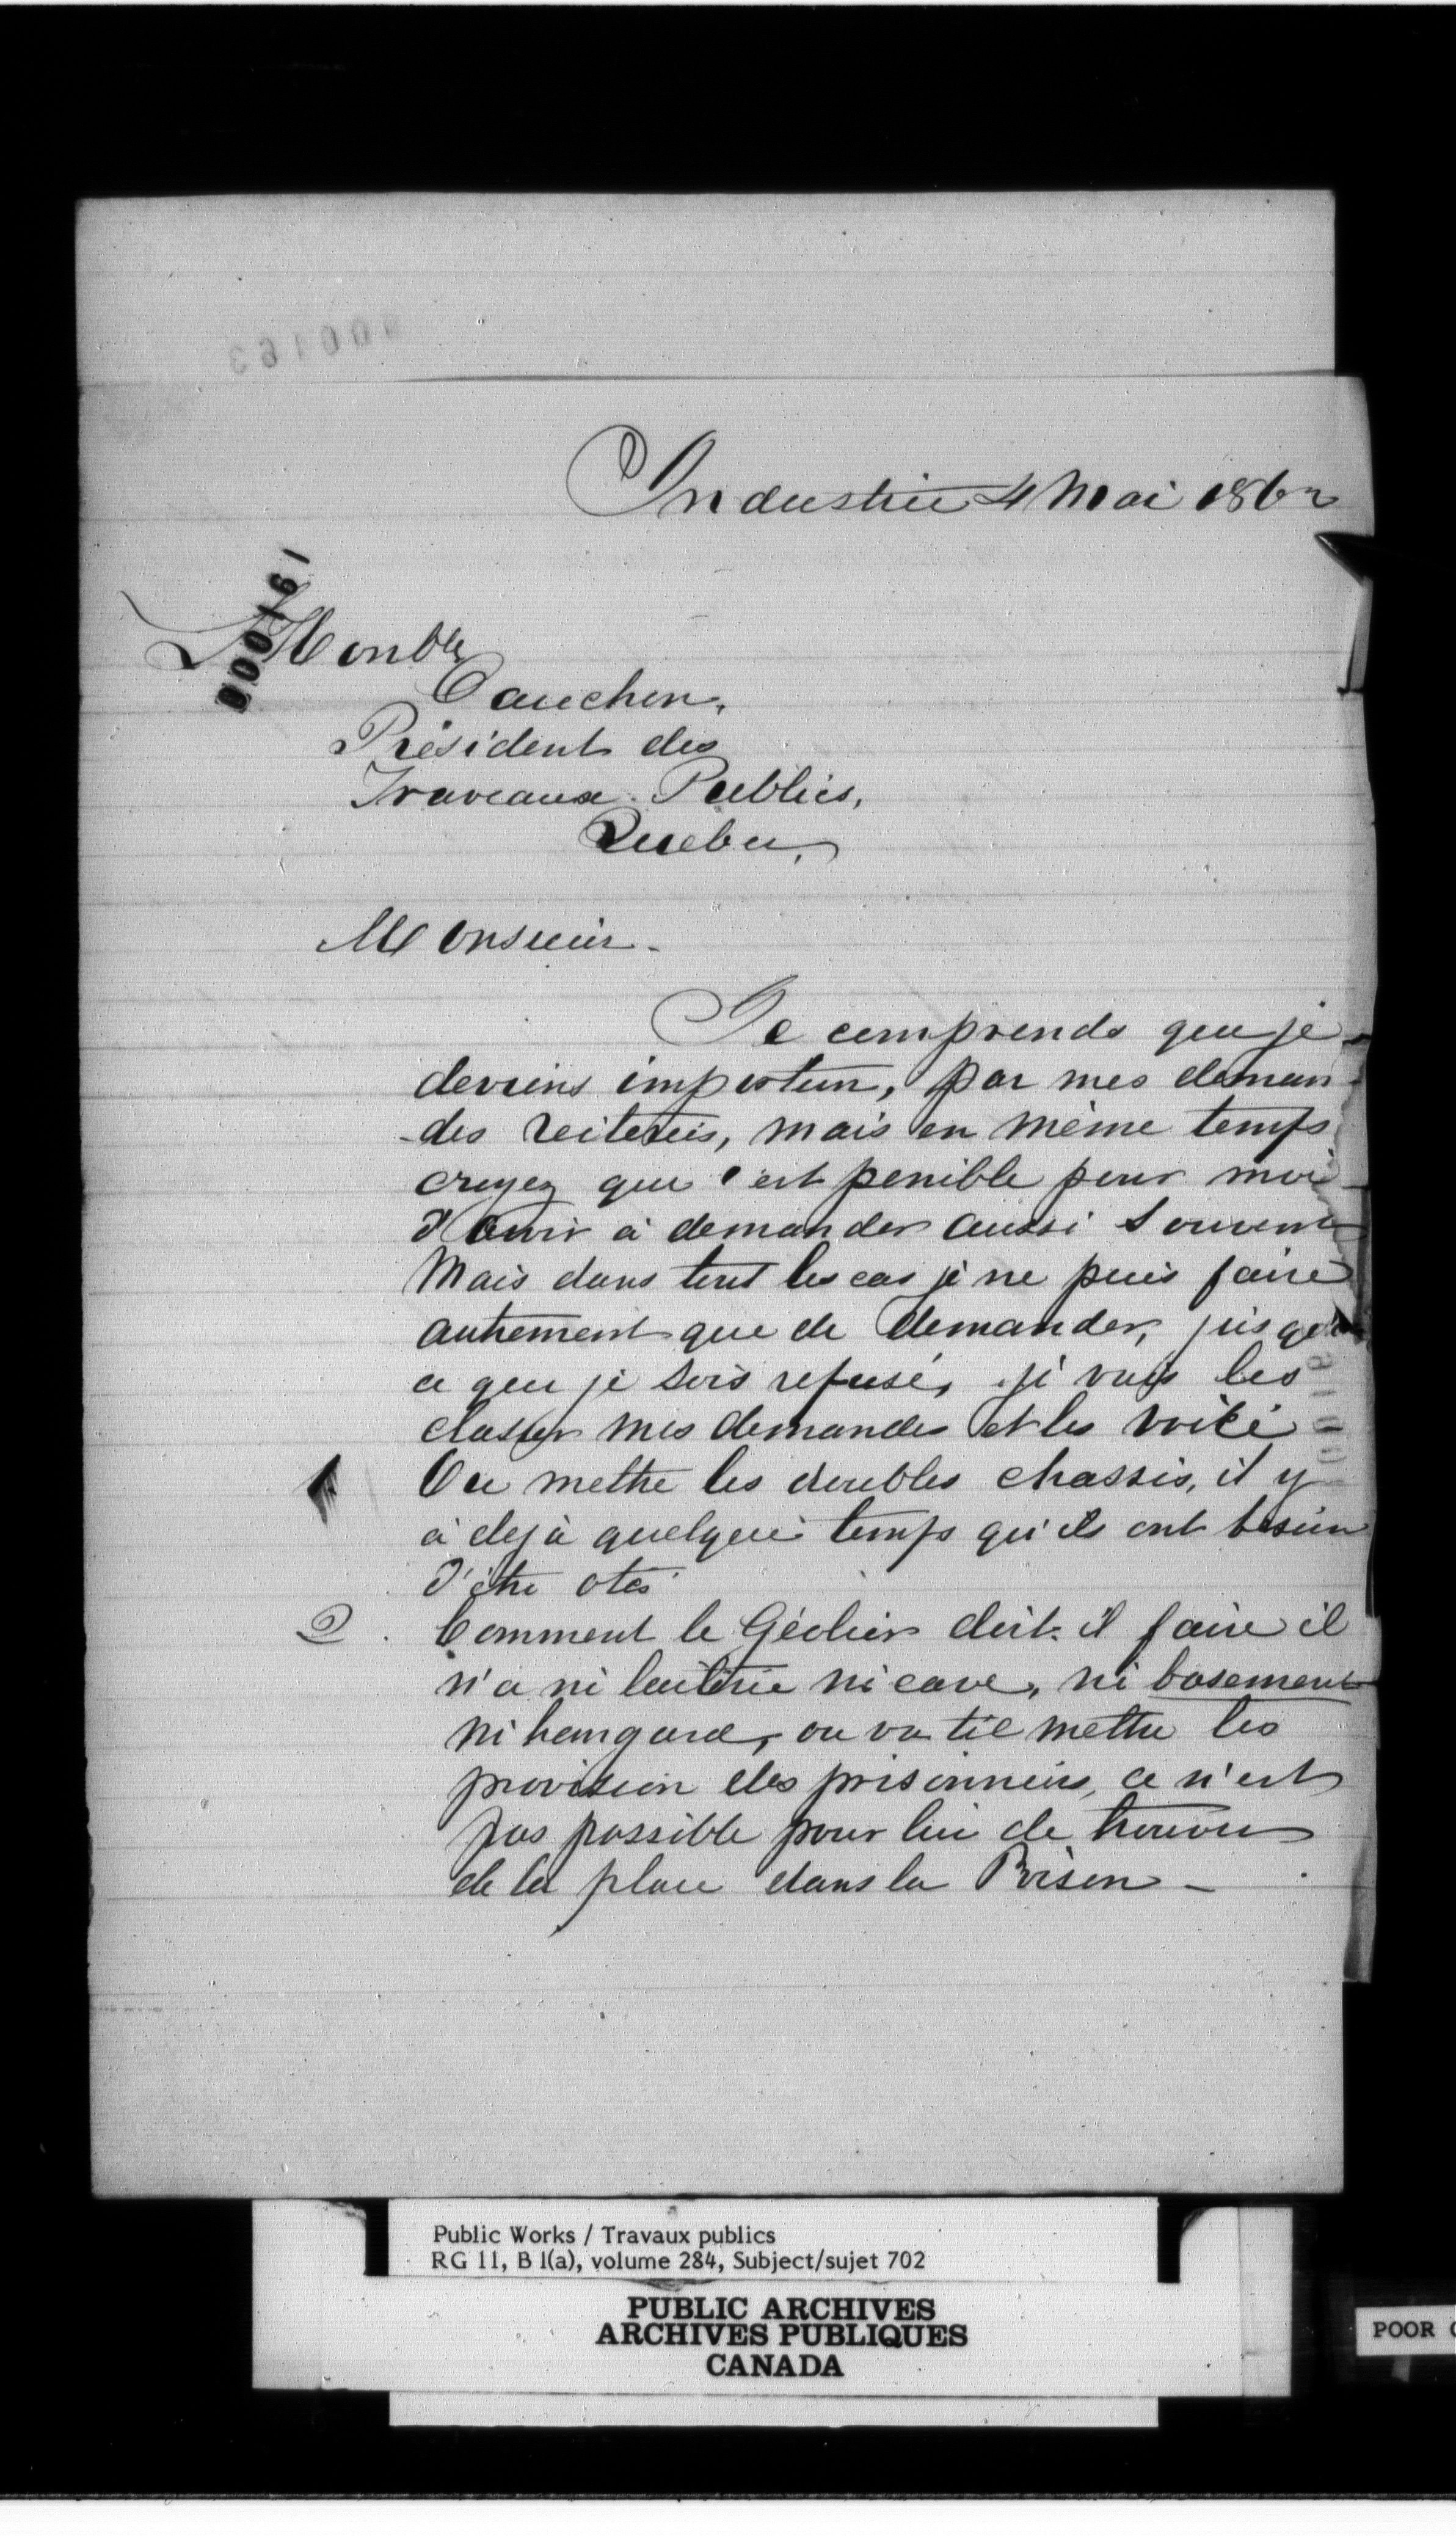 000163
Industrie 4 Mai 1862
000161
L'Honble
Cauchon,
Président des
Traveaux Publics,
Quebec,
Monsieur -
Je comprends que je
deviens importun, par mes deman
-des reiterés, mais en même temps
croyez que c'est penible pour moi
d'avoir à demander aussi souvent
Mais dans tout les cas je ne puis faire
autrement que de demander, jusqu'à
ce que je sois refusé, je vais les
classer mes demandes et les voici
1. Ou mettre les doubles chassis, il y
à dejà quelque temps qu'ils ont besoin
d'être otés
2. Comment le Géolier doit-il faire il
n'a ni laiterie ni cave, ni basement
ni hangard, ou va til mettre les
provision des prisonniers, ce n'est
pas possible pour lui de trouver
de la place dans la Prison -
Public Works / Travaux publics
RG 11, B 1(a), volume 284, Subject/sujet 702
PUBLIC ARCHIVES
ARCHIVES PUBLIQUES
CANADA
POOR